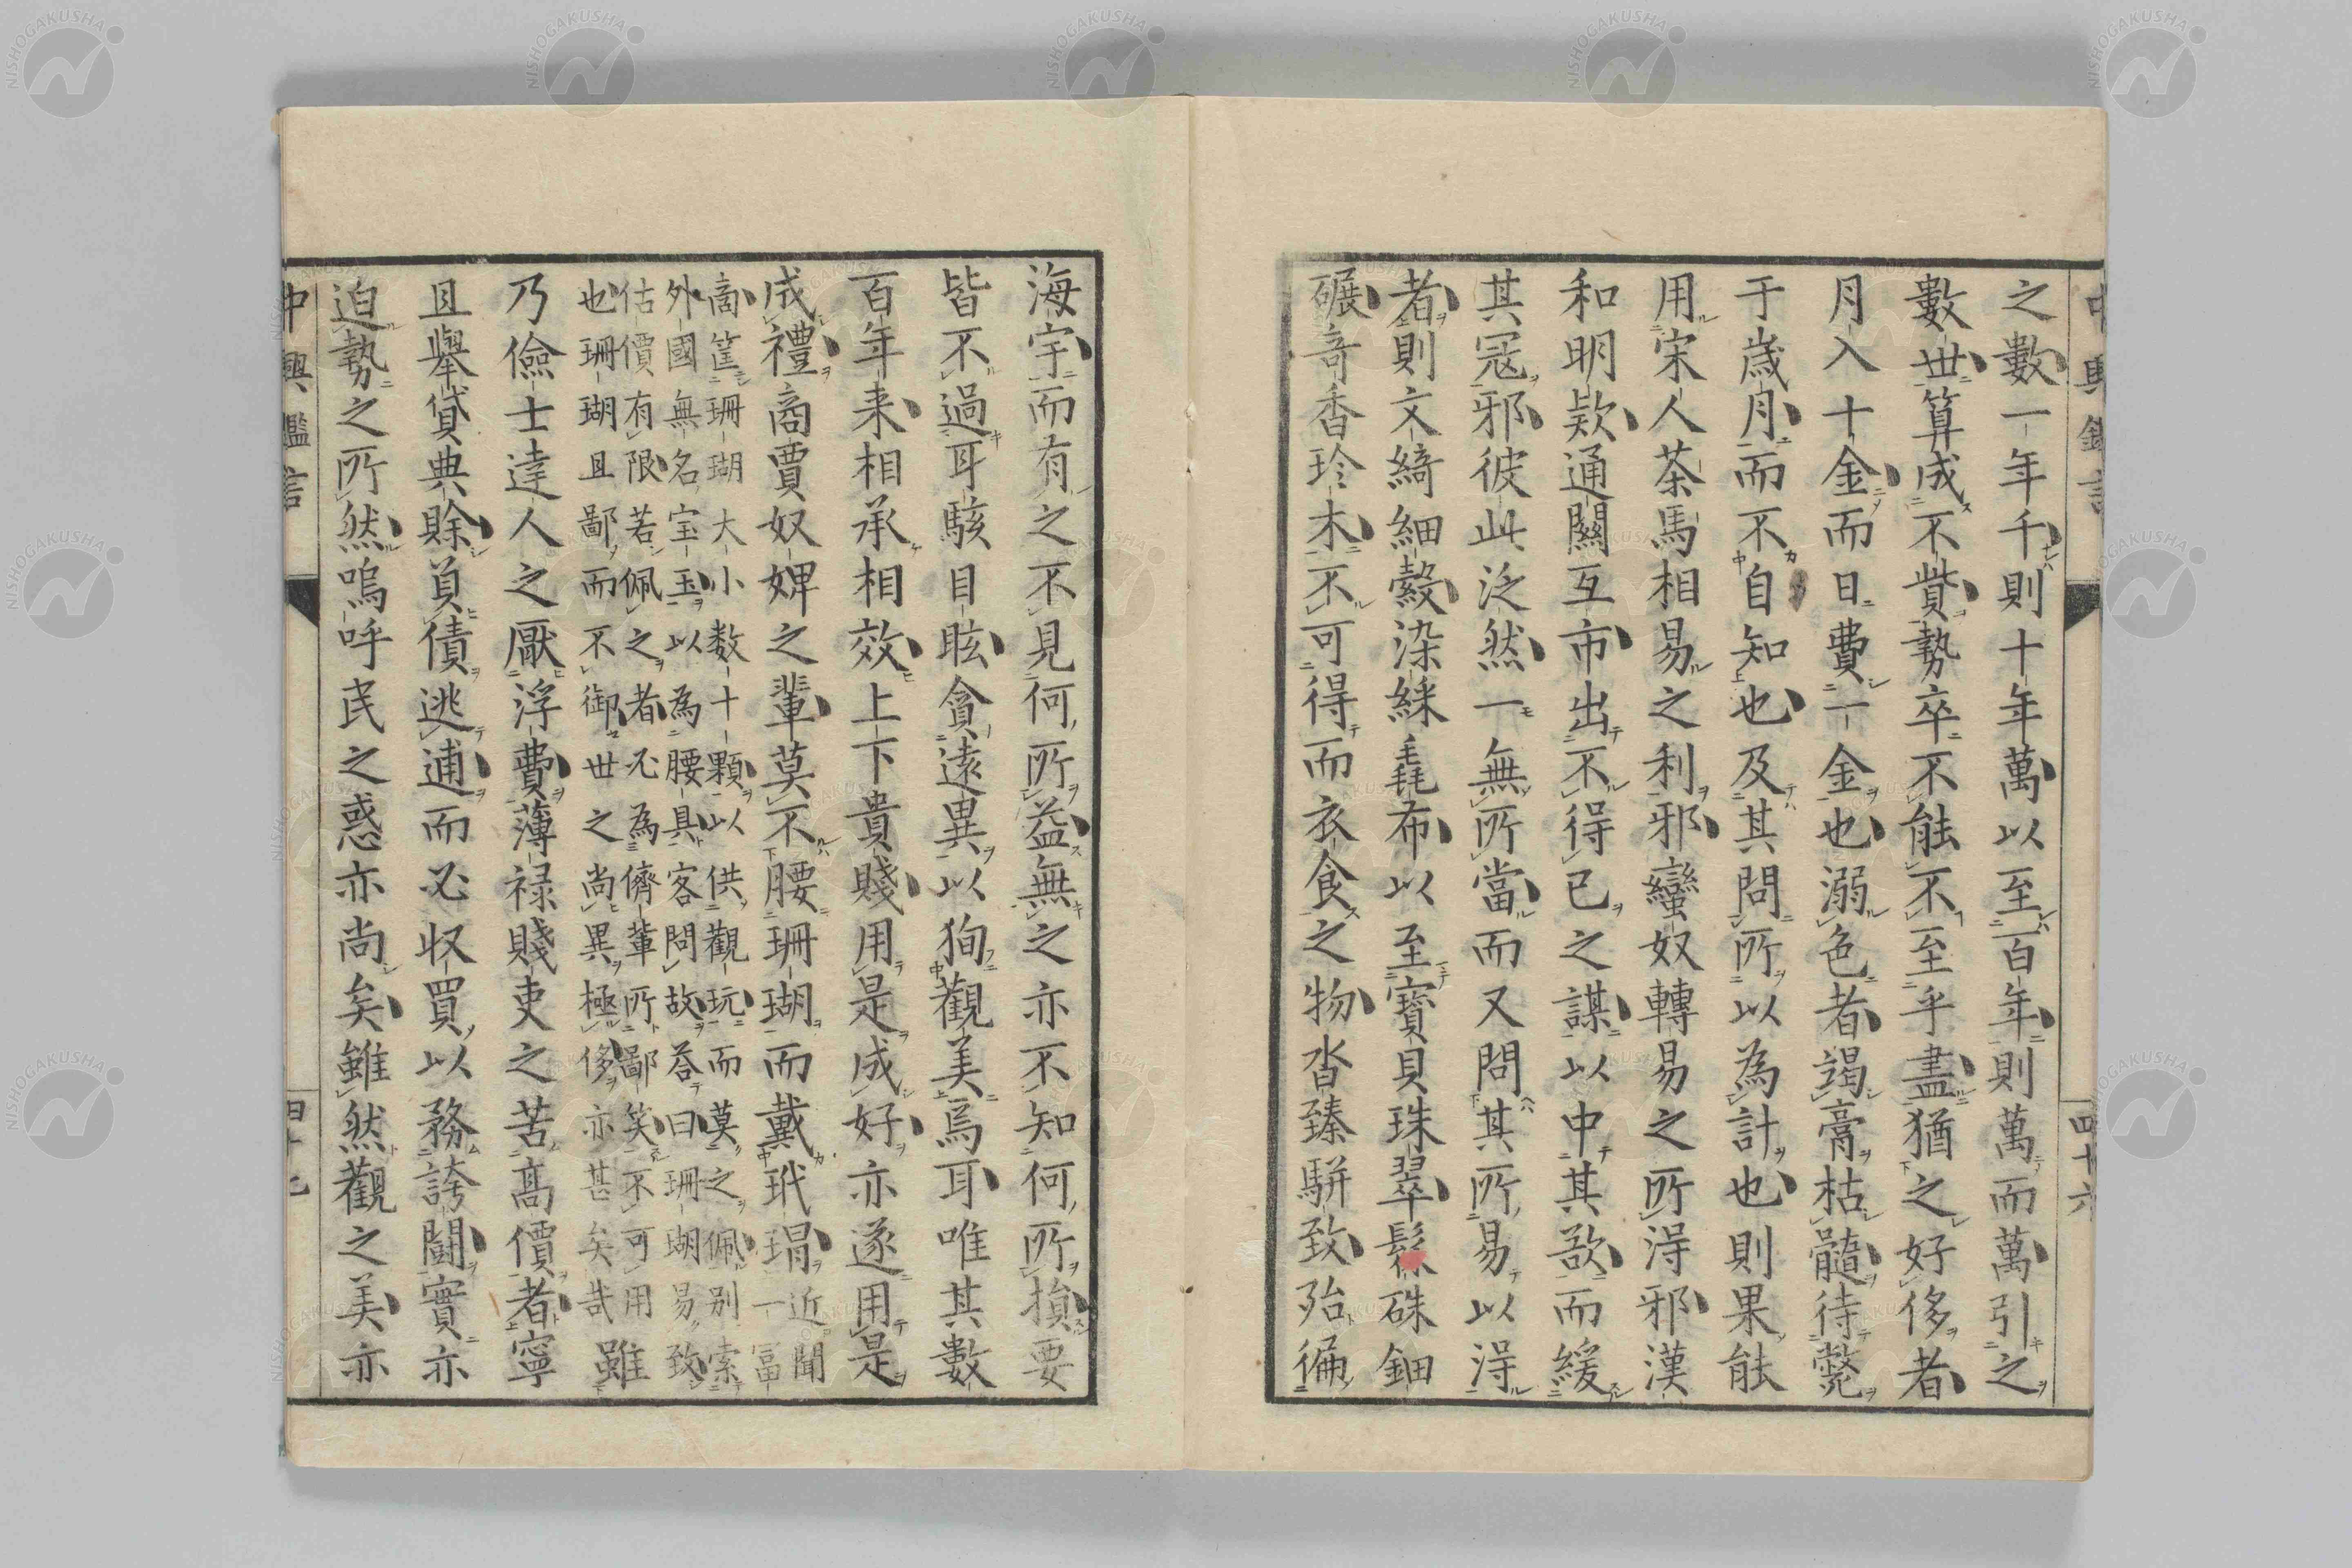 之數一年千則十年萬以至百年則萬而萬引之
數世算成不貲勢卒不能不至乎盡猶之好侈者
月入十金而日費一金也溺色者竭膏枯髓待斃
于歲月而不自知也及其問所以為計也則果能
用宋人茶馬相易之利邪蠻奴轉易之所得邪漢
和明款通關互市出不得已之謀以中其欲而緩
其寇邪彼此泛然一無所當而又問其所易以得
者則文綺細縠染綵毳布以至寶貝珠翠硃鈿
碾奇香珍木不可得而衣食之物沓臻駢致殆徧
海宇而有之不見何所益無之亦不知何所損要
皆不過耳駭目眩貪遠異以狥觀美焉耳唯其數
百年来相承相效上下貴賤用是成好亦遂用是
成禮商賈奴婢之輩莫不腰珊瑚而戴玳瑁
近聞
一富
啇筐珊瑚大小数十顆以供觀玩而莫之佩别索
外國無名宝玉以為腰具客問故荅曰珊瑚易致
估價有限若佩之者必為儕輩所鄙笑不可用
也珊瑚且鄙而不御世之尚異極侈亦甚矣哉
雖
乃儉士達人之厭浮費薄禄賤吏之苦高價者寧
且舉貸典賖負債逃逋而必収買以務誇鬪實亦
迫勢之所然嗚呼民之惑亦尚矣雖然觀之美亦
中興鑑言
四十六
中興鑑言
四十七
NISHOGAKUSHA